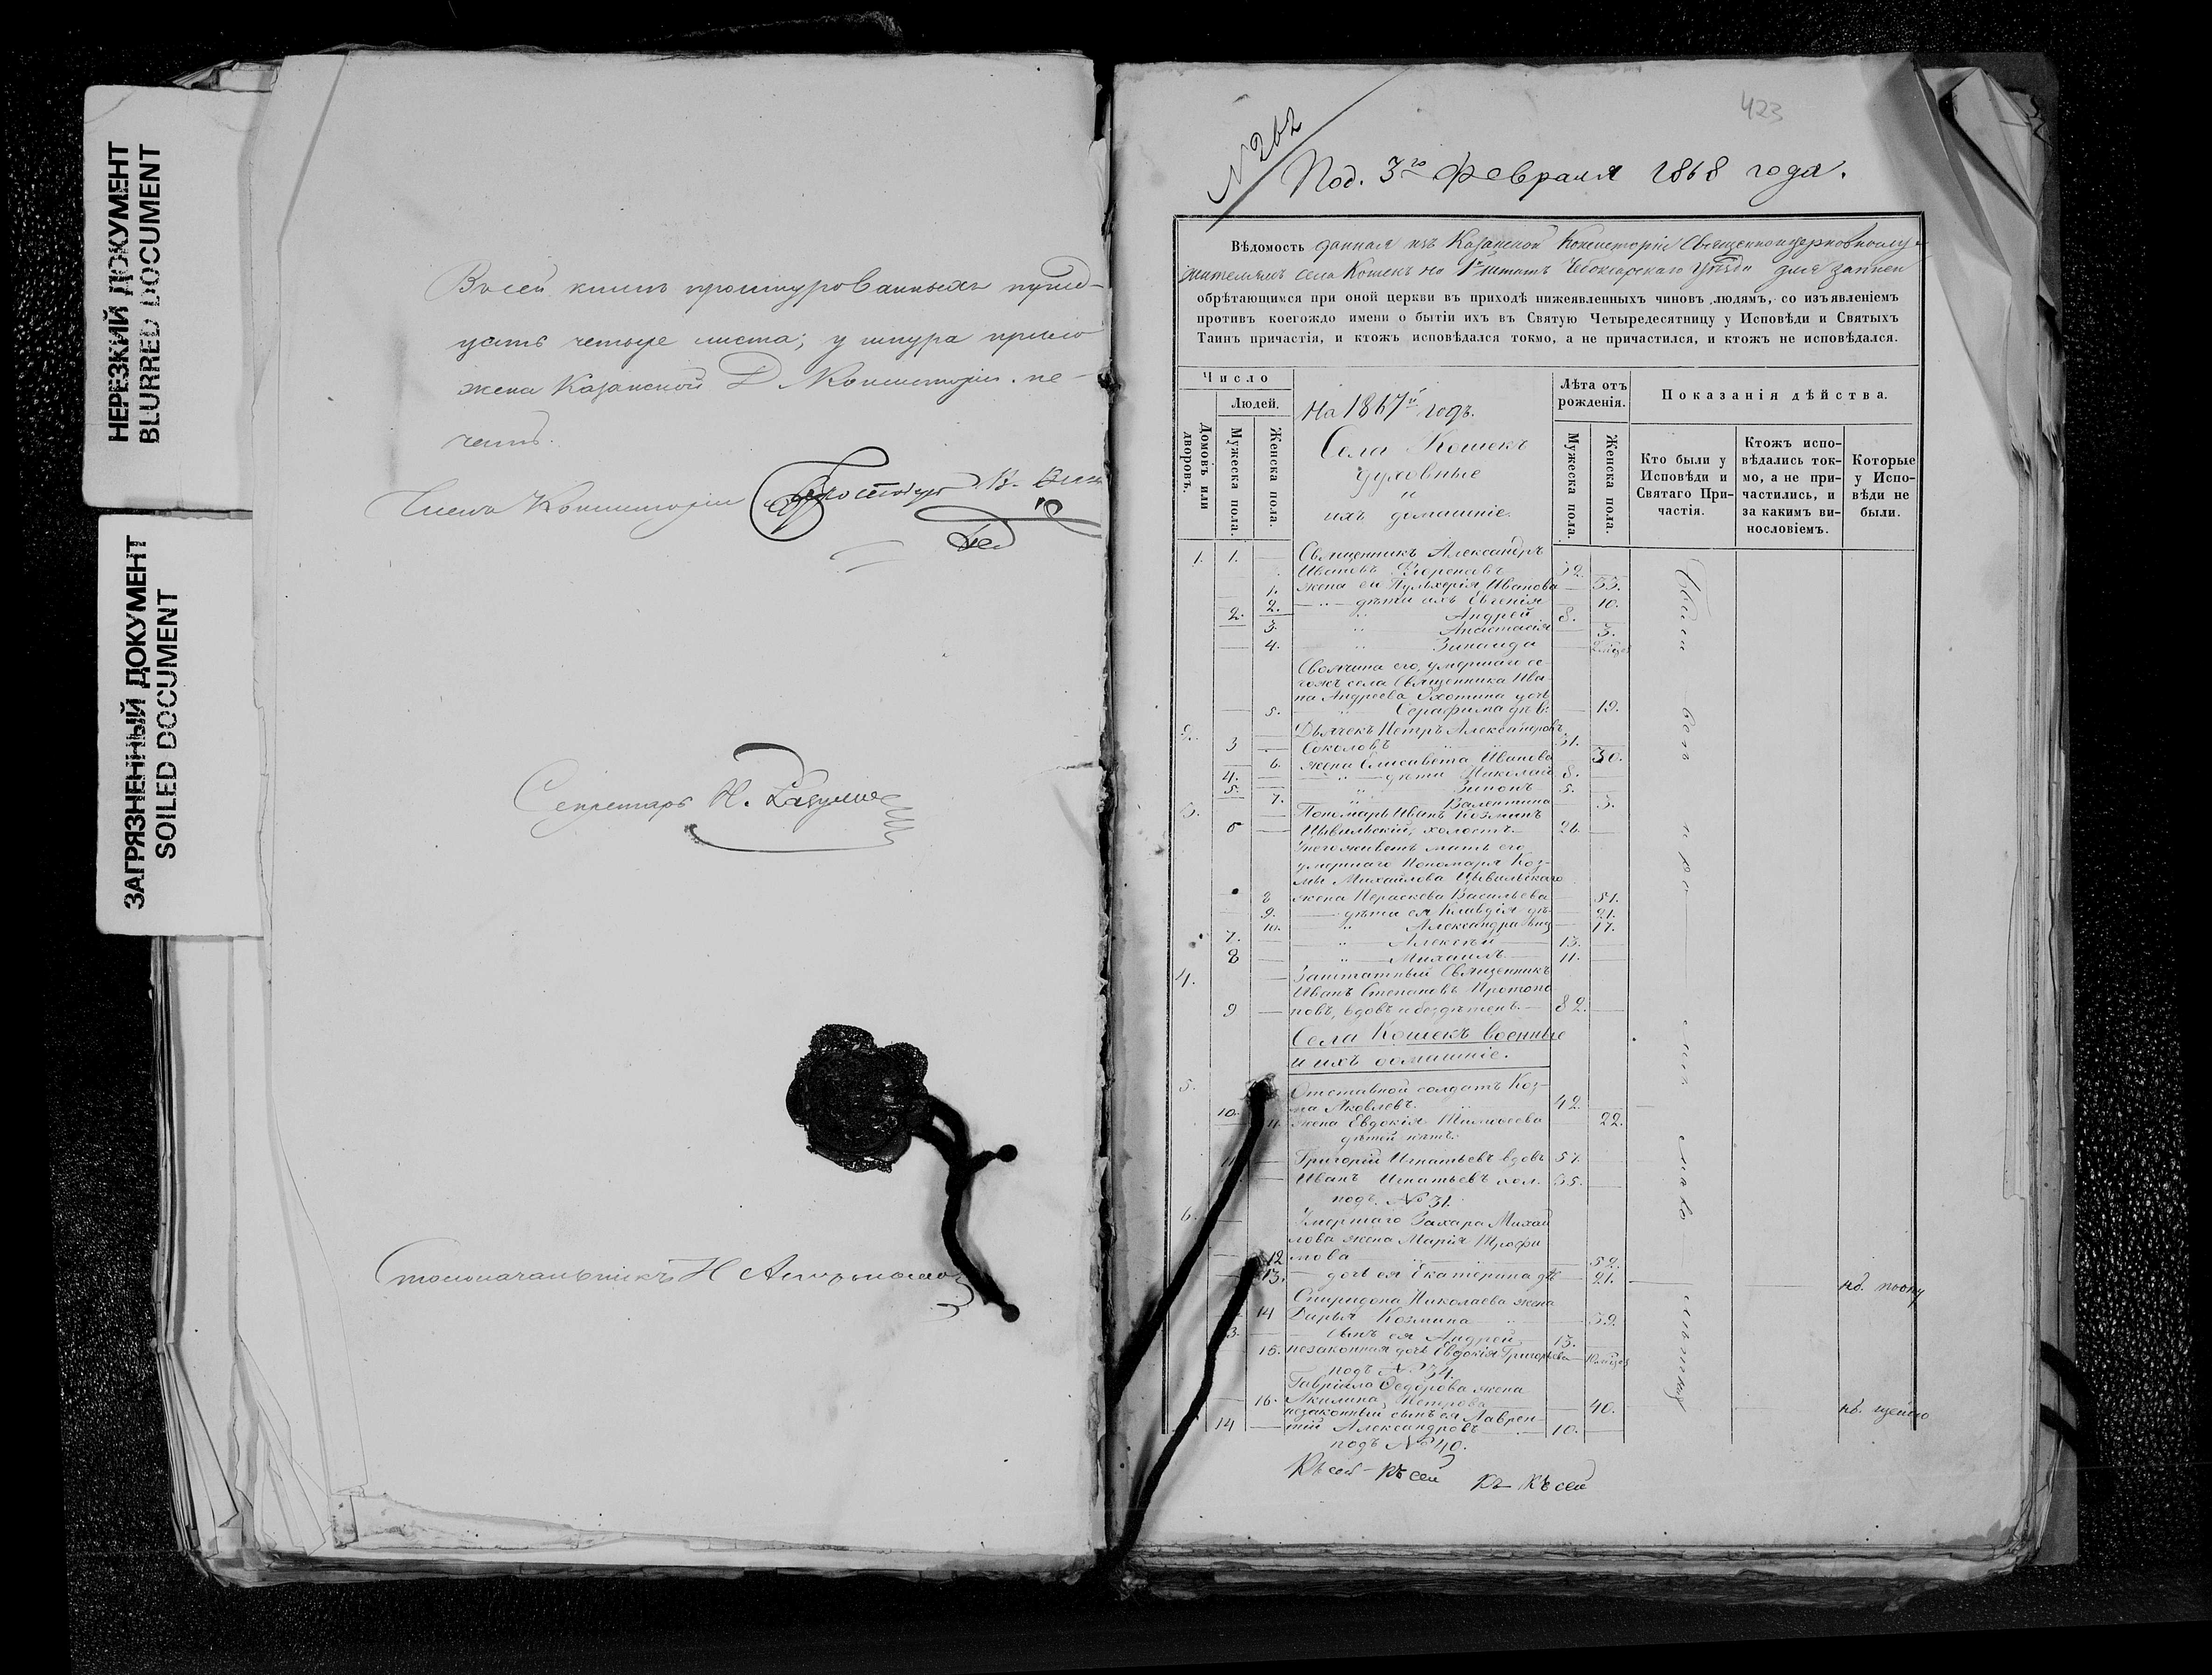 НЕРЕЗКИЙ ДОКУМЕНТ
BLURRED DOCUMENT
ЗАГРЯЗНЕННЫЙ ДОКУМЕНТ
SOILED DOCUMENT
Въ сей книгѣ прошнурованныхъ
четыре листа; у шнура прило
жена Казанской Д Консисторіи пе-
чать.
Члены Консисторіи
Секретарь Н.
Столоначальникъ Н
423
N 262
Под. 3го Февраля 1868 года.
Вѣдомость данная изъ Казанской Консисторіи Священноцерковнослу-
жителямъ села Кошекъ на 1868й Чебоксарскаго Уѣзда для записи
обрѣтающимся при оной церкви въ приходѣ нижеявленныхъ чиновъ людямъ, со изъявленіемъ
противъ коегождо имени о бытіи ихъ въ Святую Четыредесятницу у Исповѣди и Святыхъ
Таинъ причастія, и ктожъ исповѣдался токмо, а не причастился, и ктожъ не исповѣдался.
Число
Людей.
Домовъ или дворовъ.
Мужеска пола.
Женска пола.
На 1867й годъ.
Села Кошекъ
духовные
и
ихъ домашніе.
Лѣта отъ рожденія.
Мужеска пола.
Женска пола.
Показанія дѣйства.
Кто были у Исповѣди и Святаго При-частія.
Ктожъ испо-вѣдались ток-мо, а не при-частились, и за какимъ ви-нословіемъ.
Которые у Испо-вѣди не были.
1. 1. Священникъ Александръ
Ивановъ 32.
1. жена ея Пульхерія Иванова 33.
2. дѣти ихъ Евгенія 10.
2. Андрей 8.
3. Анастасія 3.
4. Зинаида
Своячина его, умершаго се-
гожъ села Священника Ива-
на Андреева Охотина дочь
5. Серафима дѣв: 19.
2. Дьячекъ Петръ Александровъ
3 Соколовъ 31.
6. жена Елисавета Иванова 30.
4. дѣти Николай 8.
5. Зинонъ 5.
7. Валентина 3.
3. Пономарь Иванъ Козминъ
6 Цывильскій, холостъ. 26.
У него живетъ мать его
умершаго Пономаря Коз-
мы Михайлова Цывильскаго
8 жена Пераскева Васильева 51.
9. дѣти ея Клавдія дѣ. 21.
10. Александра дѣвиц 17.
7. Алексѣй 13.
8 Михаилъ 11.
4. Заштатный Священникъ
Иванъ Степановъ Протопо
9 повъ, вдовъ и бездѣтенъ. 82.
Села Кошекъ военные
и ихъ домашніе.
5. Отставной солдатъ Коз-
10. ма Яковлевъ. 42.
11. жена Евдокія Тимофеева 22.
дѣтей нѣтъ.
11 Григорій Игнатьевъ вдовъ 57.
Иванъ Игнатьевъ хол. 35.
подъ № 31.
6. Умершаго Захара Михай
лова жена Марія Трофи
12 мова 52.
13. дочь ея Екатерина дѣ 21.
Спиридона Николаева жена
14 Дарья Козмина 39.
3. сынъ ея Андрей 13.
15. незаконная дочь Евдокія Григорьева
подъ № 34.
Гавріила Ѳедорова жена
16. Акилина Петрова 40.
незаконный сынъ ея Лаврен-
14 тій Александровъ 10.
подъ № 40.
Къ сей Къ сей Къ Къ сей